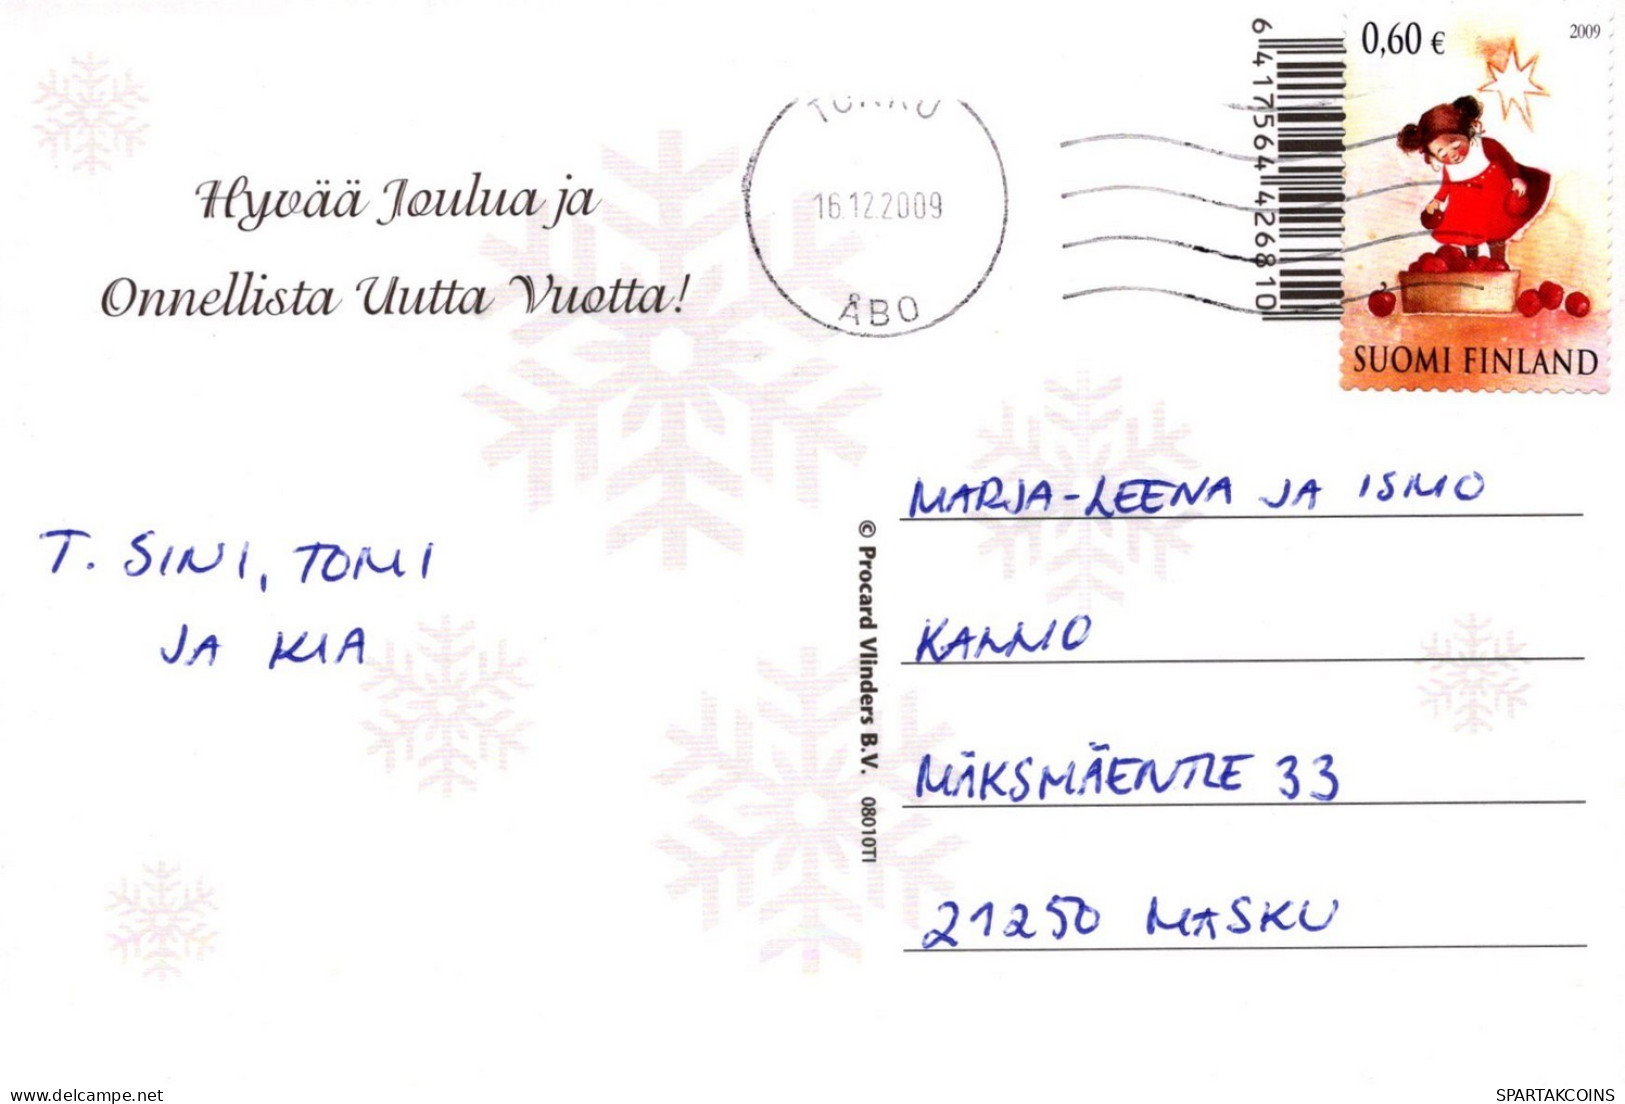 Hyvää Joulua ja
Onnellista Uutta Vuotta!
TURKU
16.12.2009
ÅBO
6 417564 426810
0,60 €
2009
SUOMI FINLAND
T. SINI, TOMI
JA KIA
© Procard Vlinders B.V. 08010TI
MARJA-LEENA JA ISMO
KANNO
MÄKSMÄENTIE 33
21250 MASKU
delcampe.net
SPARTAKCOINS